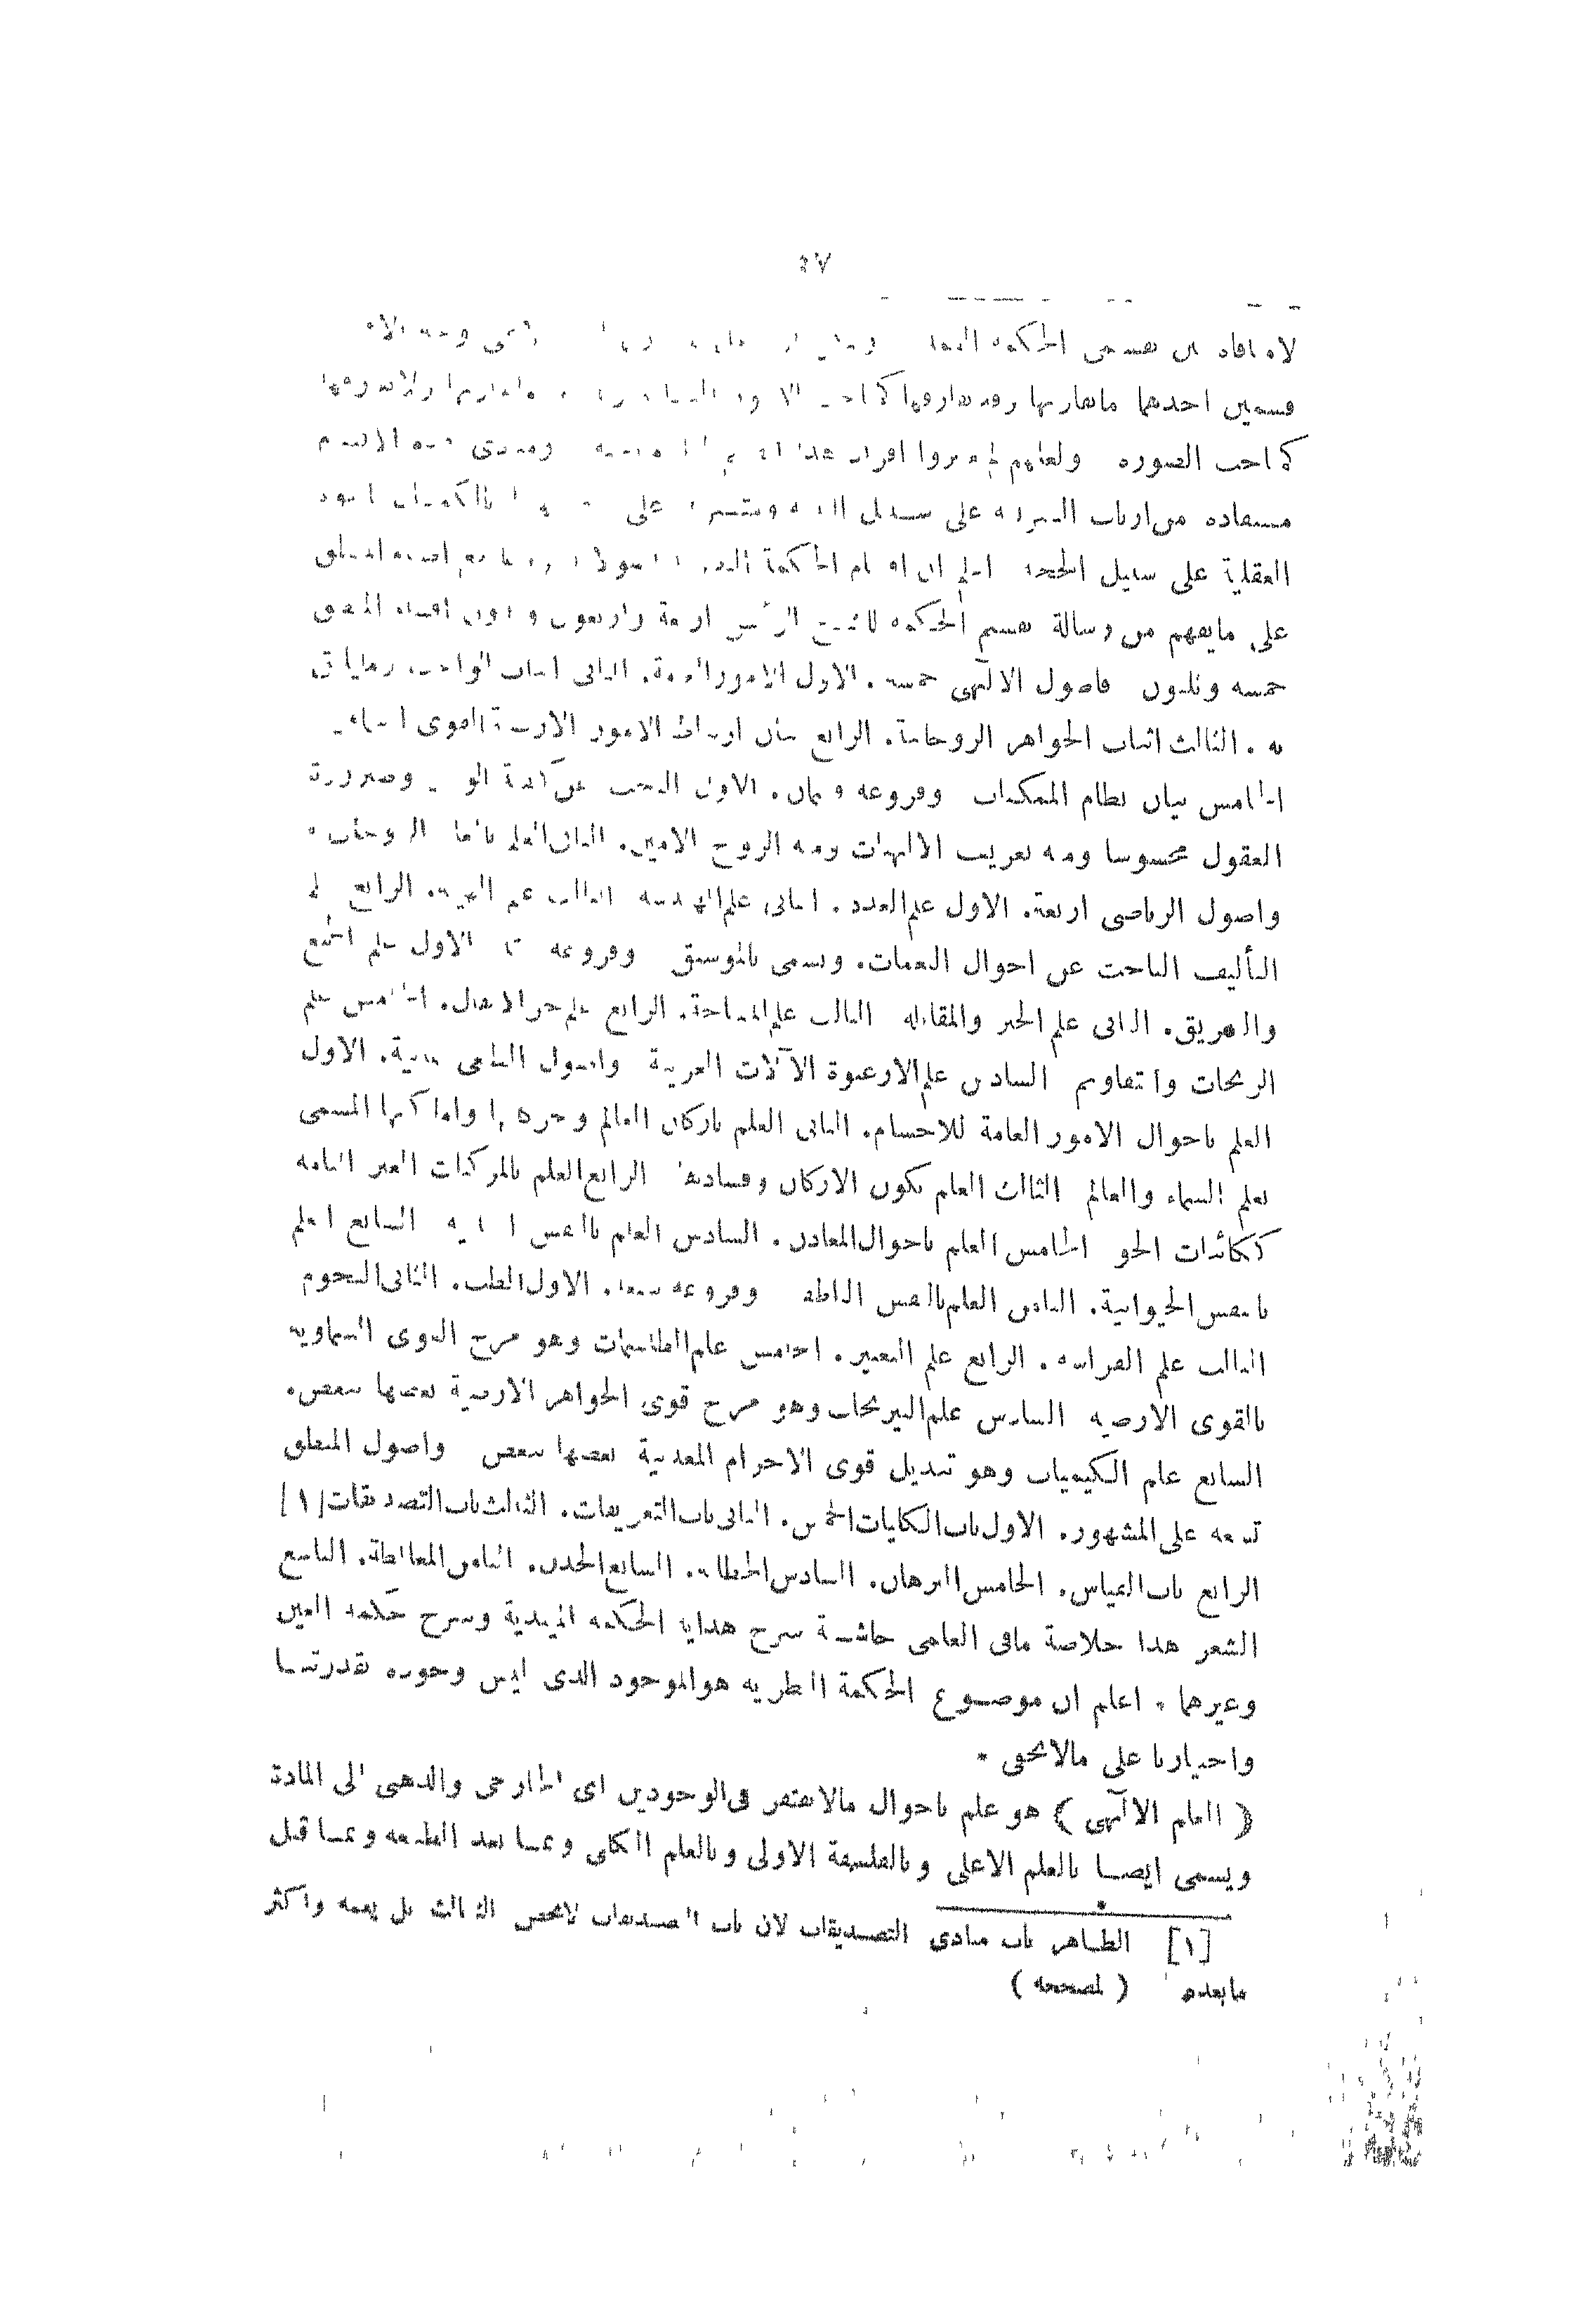 ٤٧
قسمين احدهما مايقارنها وقد يفارقها
كمباحث الصورة ولعلهم لم يعتبروا افراد ومبنى هذه الاقسام
مستفاده من ارباب على سبيل على
العقلية على سبيل الحجة اعلم ان اقسام الحكمة
على مايفهم من رسالة تقسيم الحكمة للشيخ الرئيس اربعة واربعون وبدون اقسام المنطق
خمسة وثلثون فاصول الآلهى خمسة. الاول الامور العامة. الثانى اثبات الواجب ومايليق
به. الثالث اثبات الجواهر الروحانية. الرابع بيان ارتباط الامور الارضية بالقوى السماوية
الخامس بيان نظام الممكنات وفروعه قسمان. الاول البحث عن كيفية الوحى وصيرورة
العقول محسوسا ومنه تعريف الالهيات ومنه الروح الامين. الثانى العلم بالمعاد الروحانى
واصول الرياضى اربعة. الاول علم العدد. الثانى علم الهندسة الثالث علم الهيئة. الرابع علم
التأليف الباحث عن احوال النغمات. ويسمى بالموسيقى وفروعه ستة الاول علم الجمع
والتفريق. الثانى علم الجبر والمقابلة الثالث علم المساحة. الرابع علم جر الاثقال. الخامس علم
الزيجات والتقاويم السادس علم الارغنوة الآلات الغريبة واصول الطبعى ثمانية. الاول
العلم باحوال الامور العامة للاجسام. الثانى العلم باركان العالم وحركاتها واماكنها المسمى
بعلم السماء والعالم الثالث العلم بكون الاركان وفسادها الرابع العلم بالمركبات الغير التامة
ككائنات الجو الخامس العلم باحوال المعادن. السادس العلم بالنفس النباتية السابع العلم
بالنفس الحيوانية. الثامن العلم بالنفس الناطقة وفروعه سبعة. الاول الطب. الثانى النجوم
الثالث علم الفراسة. الرابع علم التعبير. الخامس علم الطلسمات وهو مزج القوى السماوية
بالقوى الارضية السادس علم النيرنجات وهو مزج قوى الجواهر الارضية بعضها ببعض.
السابع علم الكيميات وهو تبديل قوى الاجرام المعدنية بعضها ببعض واصول المنطق
تسعه على المشهور. الاول باب الكليات الخمس. الثانى باب التعريفات. الثالث باب التصديقات [١]
الرابع باب القياس. الخامس البرهان. السادس الخطابة. السابع الجدل. الثامن المغالطة. التاسع
الشعر هذا خلاصة مافى العلمى حاشية شرح هداية الحكمة الميبدية وشرح حكمة العين
وغيرهما. اعلم ان موضوع الحكمة النظرية هو الموجود الذى ليس وجوده بقدرتنا
واختيارنا على مالايخفى *
( العلم الآلهى ) هو علم باحوال مالايفتقر فى الوجودين اى الخارجى والذهنى الى المادة
ويسمى ايضا بالعلم الاعلى وبالفلسفة الاولى وبالعلم الكلى وبما بعد الطبيعة وبما قبل
[١] الظاهر باب مبادى التصديقات لان باب التصديقات لايخص الثالث بل يعمه واكثر
مابعده ( لمصححه )